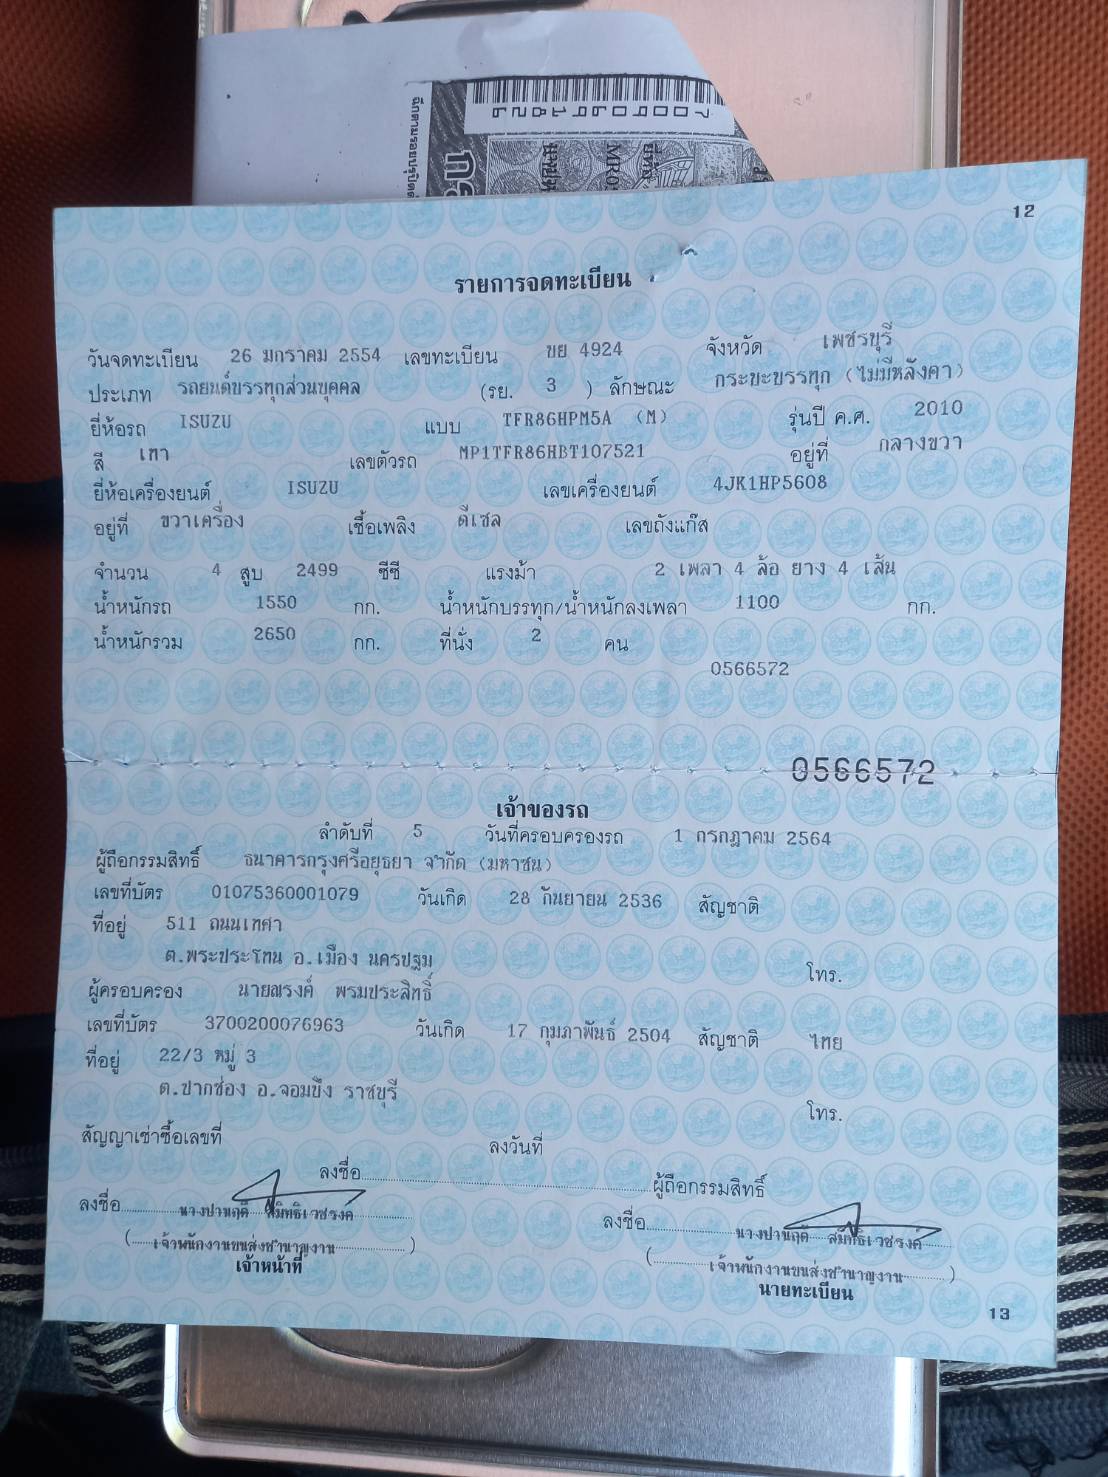 70009691826
MR0
12
รายการจดทะเบียน
วันจดทะเบียน 26 มกราคม 2554 เลขทะเบียน ขย 4924 จังหวัด เพชรบุรี
ประเภท รถยนต์บรรทุกส่วนบุคคล (รย. 3 ) ลักษณะ กระบะบรรทุก (ไม่มีหลังคา)
ยี่ห้อรถ ISUZU แบบ TFR86HPM5A (M) รุ่นปี ค.ศ. 2010
สี เทา เลขตัวรถ MP1TFR86HBT107521 อยู่ที่ กลางขวา
ยี่ห้อเครื่องยนต์ ISUZU เลขเครื่องยนต์ 4JK1HP5608
อยู่ที่ ขวาเครื่อง เชื้อเพลิง ดีเซล เลขถังแก๊ส
จำนวน 4 สูบ 2499 ซีซี แรงม้า 2 เพลา 4 ล้อ ยาง 4 เส้น
น้ำหนักรถ 1550 กก. น้ำหนักบรรทุก/น้ำหนักลงเพลา 1100 กก.
น้ำหนักรวม 2650 กก. ที่นั่ง 2 คน
0566572
0566572
เจ้าของรถ
ลำดับที่ 5 วันที่ครอบครองรถ 1 กรกฎาคม 2564
ผู้ถือกรรมสิทธิ์ ธนาคารกรุงศรีอยุธยา จำกัด (มหาชน)
เลขที่บัตร 01075360001079 วันเกิด 28 กันยายน 2536 สัญชาติ
ที่อยู่ 511 ถนนเทศา
ต.พระประโทน อ.เมือง นครปฐม โทร.
ผู้ครอบครอง นายณรงค์ พรมประสิทธิ์
เลขที่บัตร 3700200076963 วันเกิด 17 กุมภาพันธ์ 2504 สัญชาติ ไทย
ที่อยู่ 22/3 หมู่ 3
ต.ปากช่อง อ.จอมบึง ราชบุรี โทร.
สัญญาเช่าซื้อเลขที่ ลงวันที่
ลงชื่อ ผู้ถือกรรมสิทธิ์
ลงชื่อ นางปานฤดี สมิทธิเวชรงค์ ลงชื่อ นางปานฤดี สมิทธิเวชรงค์
(เจ้าพนักงานขนส่งชำนาญงาน) (เจ้าพนักงานขนส่งชำนาญงาน)
เจ้าหน้าที่ นายทะเบียน
13